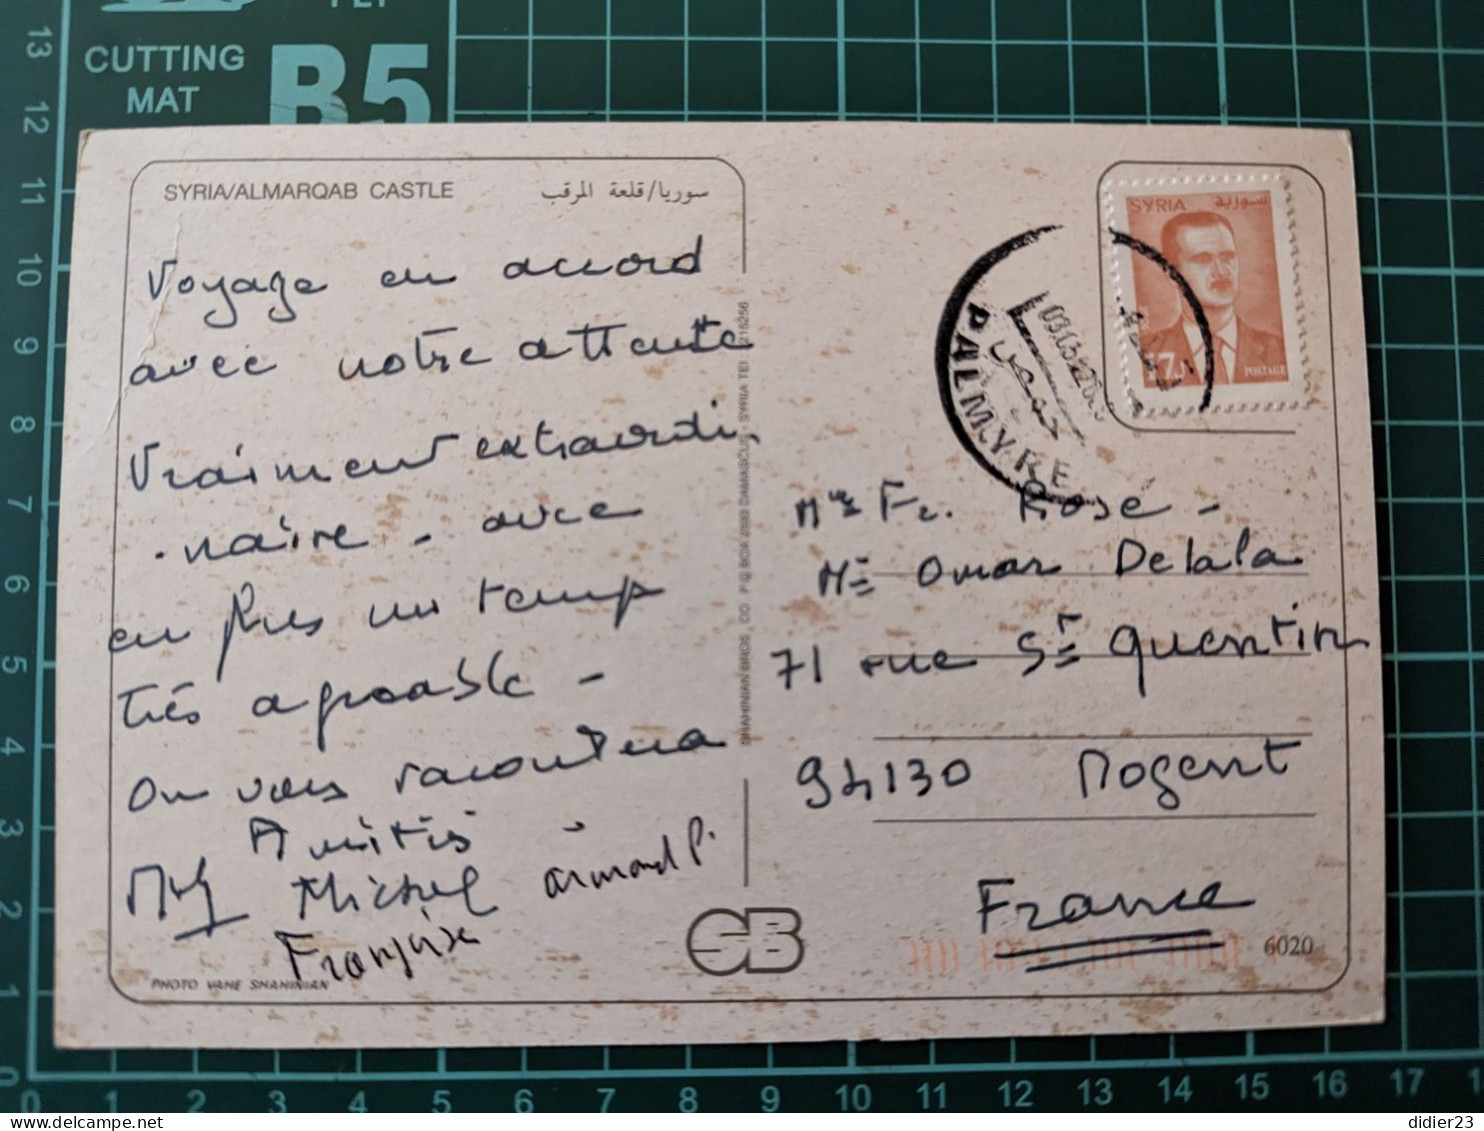 CUTTING
MAT
B5
SYRIA/ALMARQAB CASTLE
سوريا/قلعة المرقب
Voyage en accord
avec notre attente
Vraiment extraordi
-naire - avec
en plus un temps
très agréable -
On vous racontera
Amitiés
Michel Armand P.
Françoise
PHOTO VAHE SHAHINIAN
SHAHINIAN BROS. CO P.O.BOX 2593 DAMASCUS - SYRIA TEL:
SB
SYRIA سورية
17
POSTAGE
PALMYRE
Mme Fr. Rose -
Mr Omar Delala
71 rue St Quentin
94130 Nogent
France
6020
13
12
10
9
8
7
6
5
4
3
2
1
0
0 1 2 3 4 5 6 7 8 9 10 11 12 13 14 15 16 17
didier23